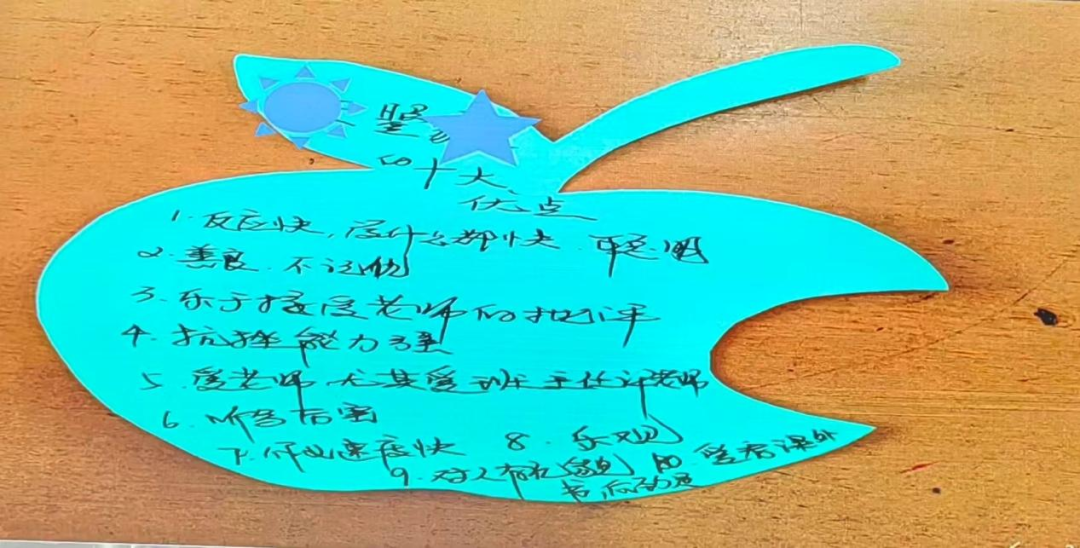 坚
的十大
优点
1. 反应快,学什么都快 聪明
2. 善良. 不记仇
3. 乐于接受老师的批评
4. 抗挫能力强
5. 爱老师 尤其爱班主任许老师
6. 听写厉害
7. 作业速度快 8. 乐观
9. 对人有礼貌 10. 爱看课外
书,